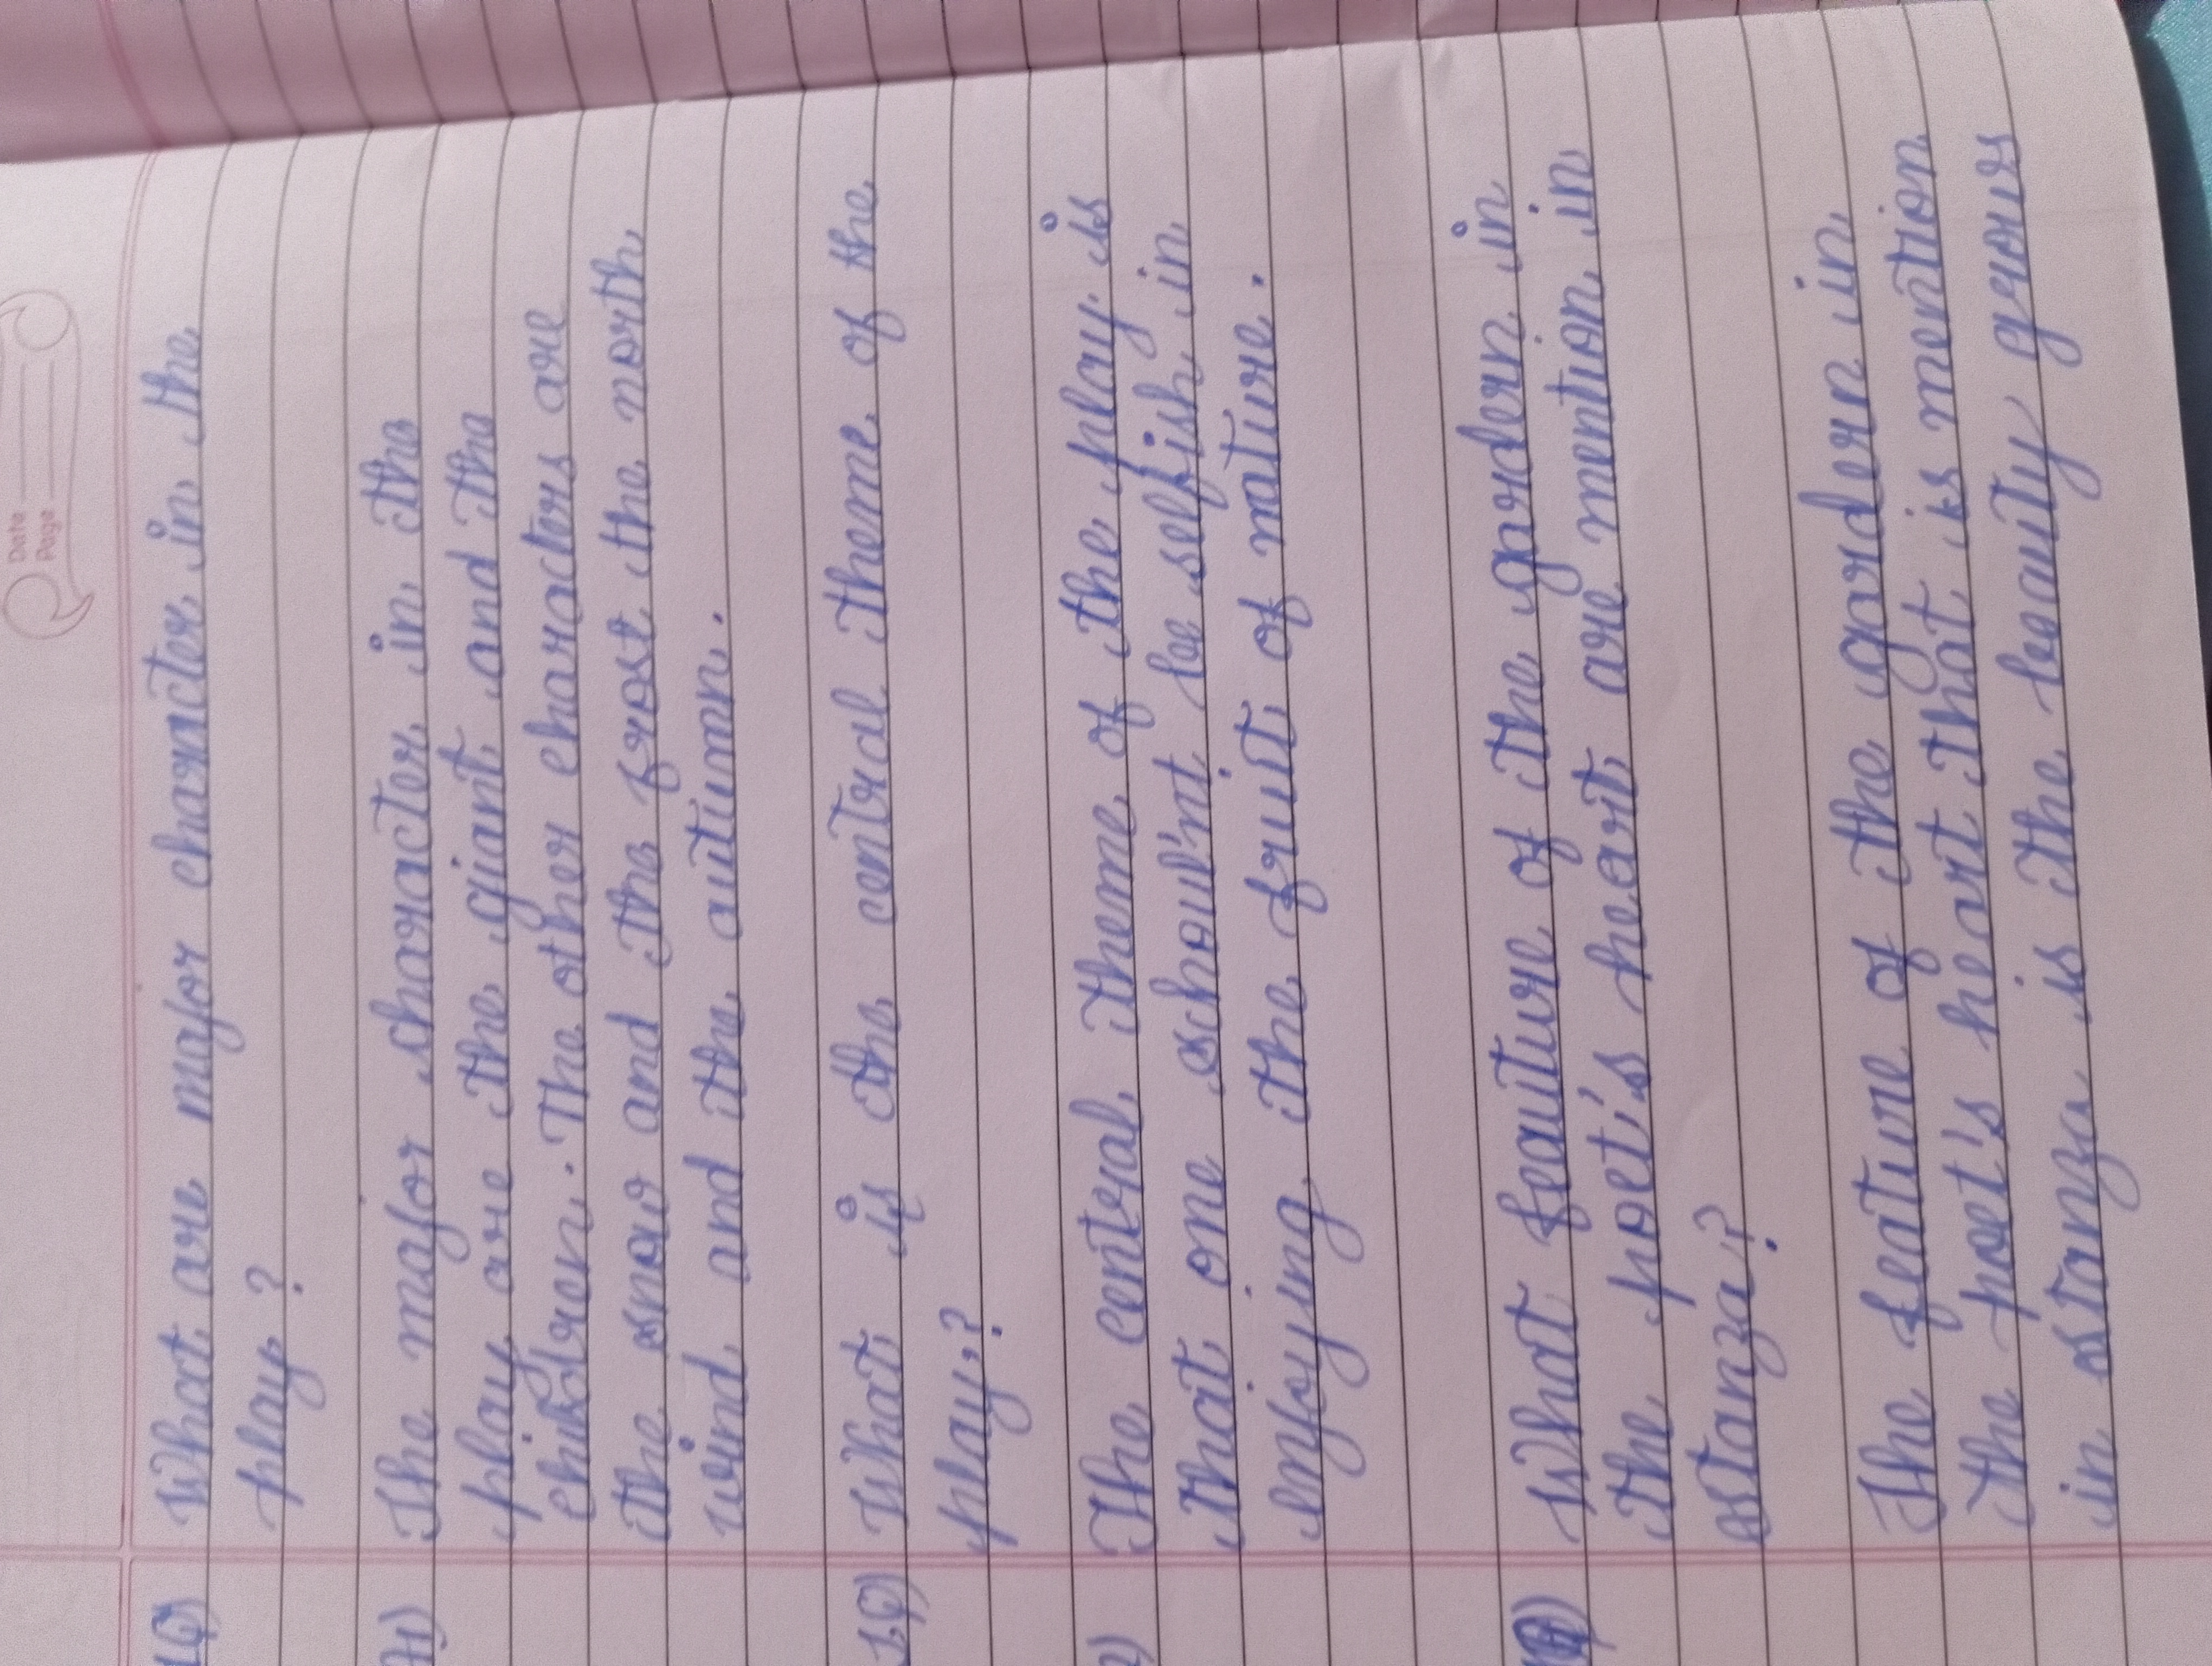 Date
Page
1Q) What are major character in the
play ?
A) The major character in the
play are the giant and the
children. The other characters are
the snow and the frost the north
wind and the autumn.
1Q) What is the central theme of the
play?
The central theme of the play is
that one shoul'nt be selfish in
enjoying the fruit of nature.
What feauture of the gardern in
the poet's heart are mention in
stanza?
The feature of the gardern in
the poet's heart that is mention
in stanza is the beauty grows